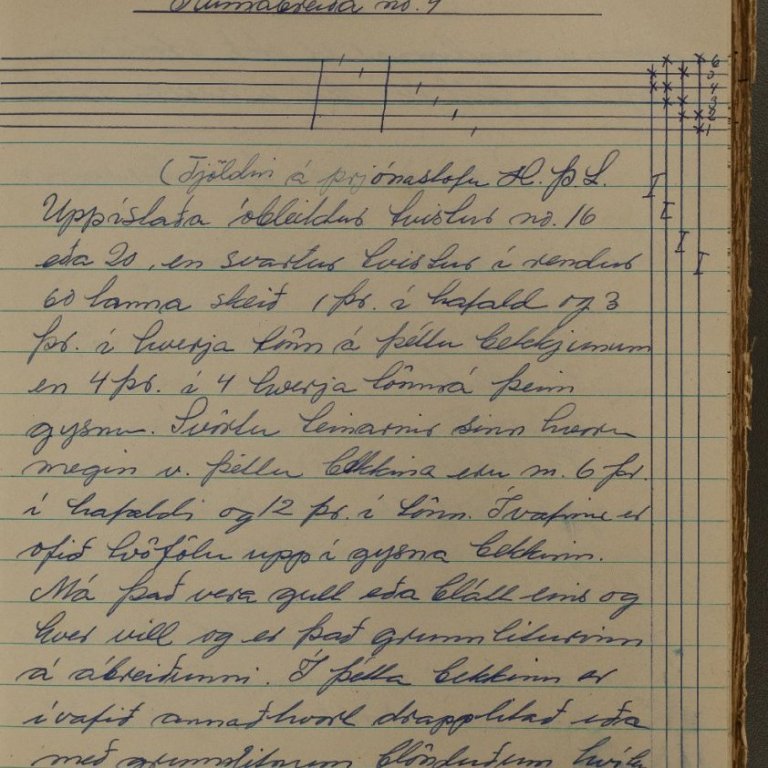 Rúmábreiða no. 4
6
5
4
3
2
1
(Tjöldin á prjónastofu H. Þ L.
Uppístaða óbleiktur tvistur no. 16
eða 20, en svartur tvistur í rendur
60 tanna skeið 1 þr. í hafald og 3
þr. í hverja tönn á þéttu bekkjunum
en 4 þr. í 4 hverja tönn á þeim
gysnu. Svörtu teinarnir sinn hvoru
megin v. þéttu bekkina eru m. 6 þr.
í hafaldi og 12 þr. í tönn. Ívafinu er
ofið tvöföldu upp í gysna bekkinn.
Má það vera gult eða blátt eins og
hver vill og er það grunnliturinn
á ábreiðunni. Í þétta bekkinn er
ívafið annaðhvort drapplitað eða
með grunnlitnum blönduðum hvítu